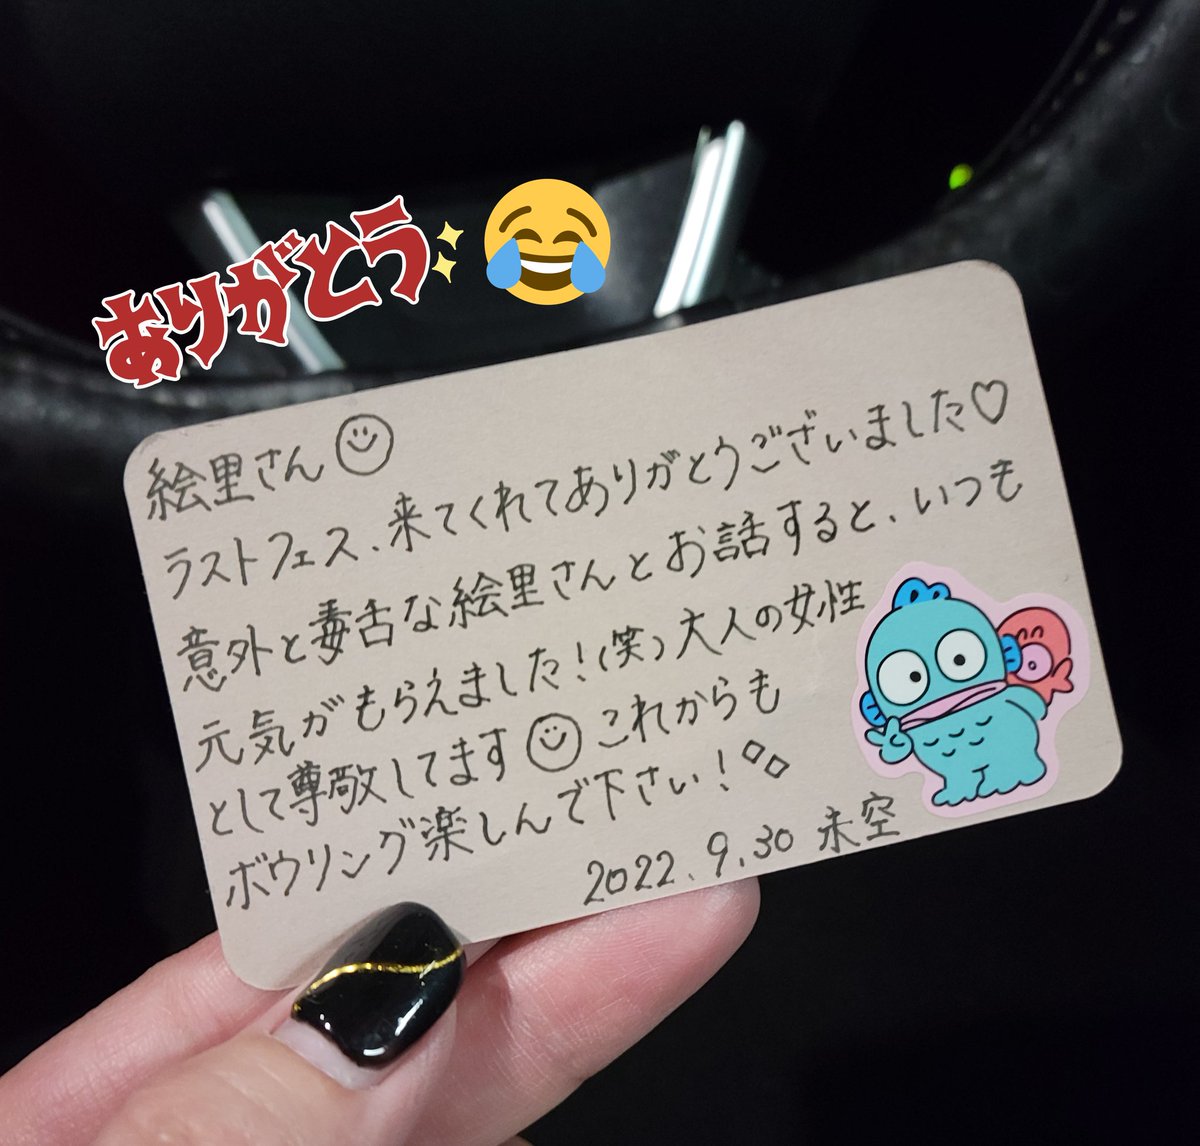 ありがとう
絵里さん
ラストフェス、来てくれてありがとうございました♡
意外と毒舌な絵里さんとお話すると、いつも
元気がもらえました！(笑)大人の女性
として尊敬してます これからも
ボウリング楽しんで下さい！
2022.9.30 未空